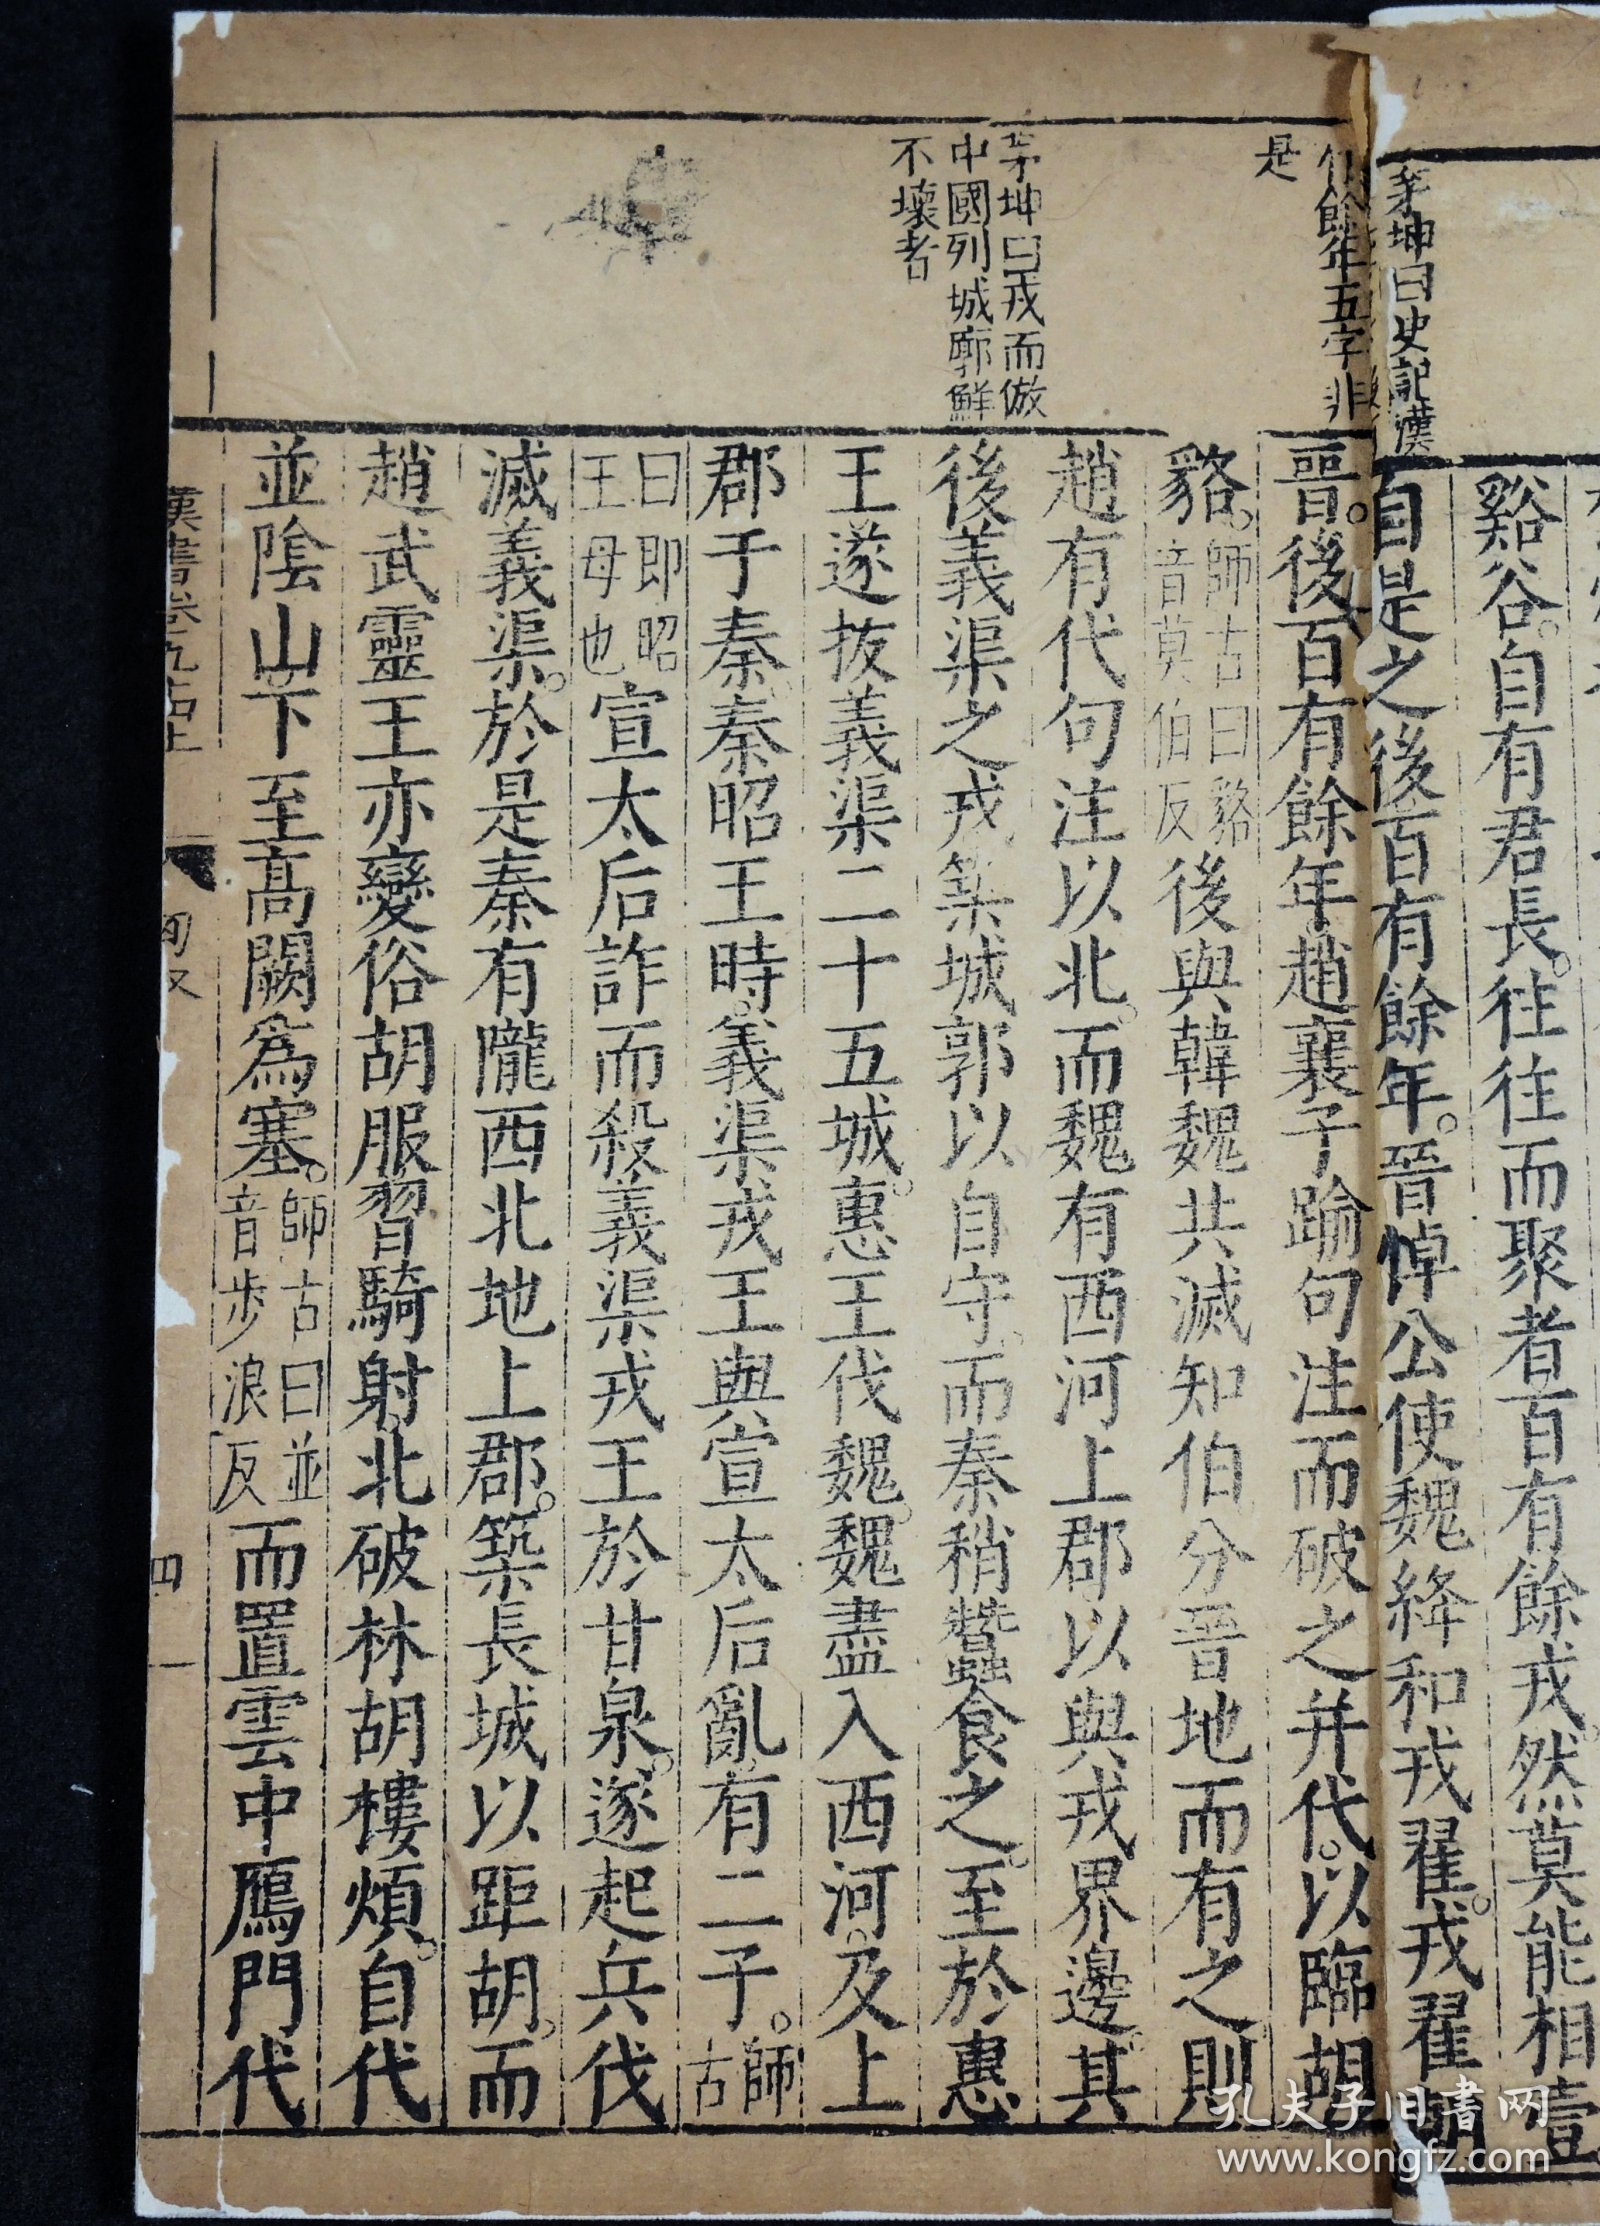 谿谷自有君長往往而聚者百有餘戎然莫能相壹
自是之後百有餘年晉悼公使魏絳和戎翟戎翟朝
晉後百有餘年趙襄子踰句注而破之并代以臨胡
貉師古曰貉音莫伯反後與韓魏共滅知伯分晉地而有之則
趙有代句注以北而魏有西河上郡以與戎界邊其
後義渠之戎築城郭以自守而秦稍蠶食之至於惠
王遂拔義渠二十五城惠王伐魏魏盡入西河及上
郡于秦秦昭王時義渠戎王與宣太后亂有二子師古
曰即昭王母也宣太后詐而殺義渠戎王於甘泉遂起兵伐
滅義渠於是秦有隴西北地上郡築長城以距胡而
趙武靈王亦變俗胡服習騎射北破林胡樓煩自代
並陰山下至高闕爲塞師古曰並音步浪反而置雲中鴈門代
茅坤曰史記漢
餘年五字非
是
茅坤曰戎而倣
中國列城廓鮮
不壞者
漢書卷九四上
匈奴
四一
孔夫子旧书网
www.kongfz.com